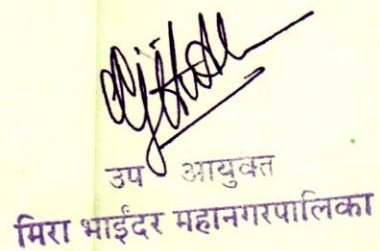 उप आयुक्त
मिरा भाईंदर महानगरपालिका